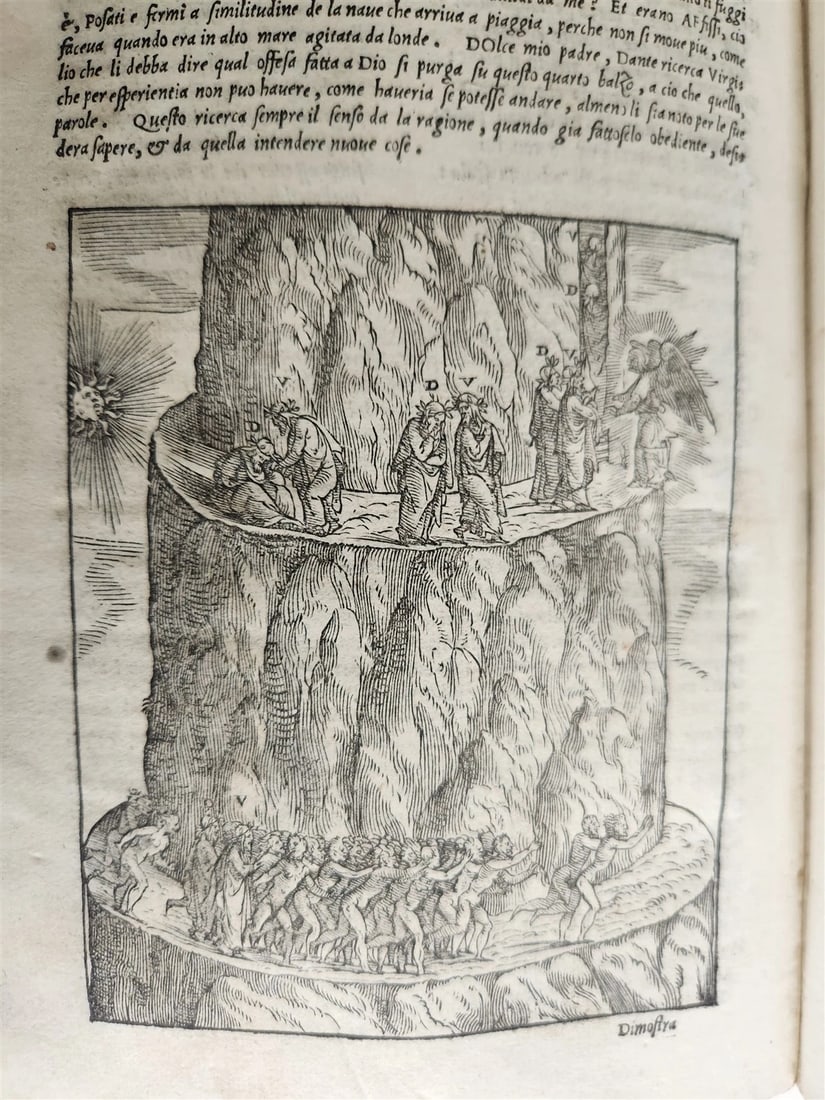 me? Et erano AFfissi, cio
è, Posati e fermi a similitudine de la naue che arriua a piaggia, perche non si moue piu, come
faceua quando era in alto mare agitata da londe. DOlce mio padre, Dante ricerca Virgi
lio che li debba dire qual offesa fatta a Dio si purga su questo quarto balzo, a cio che quello,
che per esperientia non puo hauere, come haueria se potesse andare, almen li sia noto per le sue
parole. Questo ricerca sempre il senso da la ragione, quando gia fattoselo obediente, desi
dera sapere, & da quella intendere nuoue cose.
V
D
V
D
V
D
V
D
V
Dimostra